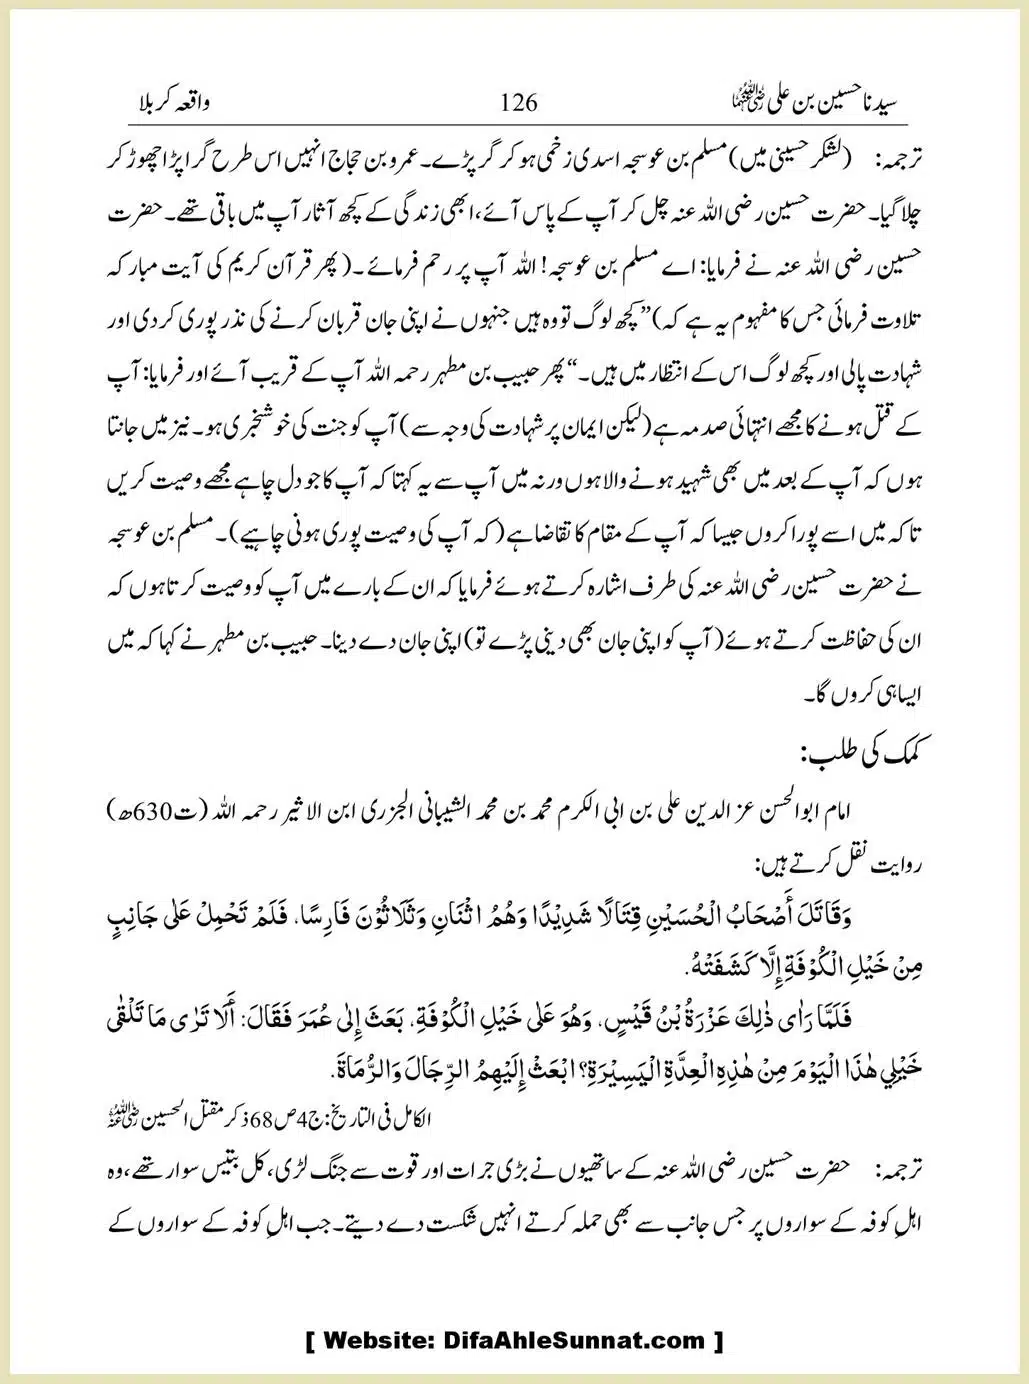 سیدنا حسین بن علی رضی اللہ عنہما 126 واقعہ کربلا
ترجمہ: (لشکر حسینی میں) مسلم بن عوسجہ اسدی زخمی ہو کر گر پڑے۔ عمرو بن حجاج انہیں اس طرح گرا پڑا چھوڑ کر
چلا گیا۔ حضرت حسین رضی اللہ عنہ چل کر آپ کے پاس آئے، ابھی زندگی کے کچھ آثار آپ میں باقی تھے۔ حضرت
حسین رضی اللہ عنہ نے فرمایا: اے مسلم بن عوسجہ! اللہ آپ پر رحم فرمائے۔ (پھر قرآن کریم کی آیت مبارکہ
تلاوت فرمائی جس کا مفہوم یہ ہے کہ) ”کچھ لوگ تو وہ ہیں جنہوں نے اپنی جان قربان کرنے کی نذر پوری کر دی اور
شہادت پالی اور کچھ لوگ اس کے انتظار میں ہیں۔“ پھر حبیب بن مطہر رحمہ اللہ آپ کے قریب آئے اور فرمایا: آپ
کے قتل ہونے کا مجھے انتہائی صدمہ ہے (لیکن ایمان پر شہادت کی وجہ سے) آپ کو جنت کی خوشخبری ہو۔ نیز میں جانتا
ہوں کہ آپ کے بعد میں بھی شہید ہونے والا ہوں ورنہ میں آپ سے یہ کہتا کہ آپ کا جو دل چاہے مجھے وصیت کریں
تاکہ میں اسے پورا کروں جیسا کہ آپ کے مقام کا تقاضا ہے (کہ آپ کی وصیت پوری ہونی چاہیے)۔ مسلم بن عوسجہ
نے حضرت حسین رضی اللہ عنہ کی طرف اشارہ کرتے ہوئے فرمایا کہ ان کے بارے میں آپ کو وصیت کرتا ہوں کہ
ان کی حفاظت کرتے ہوئے (آپ کو اپنی جان بھی دینی پڑے تو) اپنی جان دے دینا۔ حبیب بن مطہر نے کہا کہ میں
ایسا ہی کروں گا۔
کمک کی طلب:
امام ابو الحسن عز الدین علی بن ابی الکرم محمد بن محمد الشیبانی الجزری ابن الاثیر رحمہ اللہ (ت630ھ)
روایت نقل کرتے ہیں:
وَقَاتَلَ أَصْحَابُ الْحُسَيْنِ قِتَالًا شَدِيْدًا وَهُمُ اثْنَانِ وَثَلَاثُوْنَ فَارِسًا، فَلَمْ تَحْمِلْ عَلٰى جَانِبٍ
مِنْ خَيْلِ الْكُوْفَةِ إِلَّا كَشَفَتْهُ.
فَلَمَّا رَاٰى ذٰلِكَ عَزْرَةُ بْنُ قَيْسٍ، وَهُوَ عَلٰى خَيْلِ الْكُوْفَةِ، بَعَثَ إِلٰى عُمَرَ فَقَالَ: أَلَا تَرٰى مَا تَلْقٰى
خَيْلِي هٰذَا الْيَوْمَ مِنْ هٰذِهِ الْعِدَّةِ الْيَسِيْرَةِ؟ ابْعَثْ إِلَيْهِمُ الرِّجَالَ وَالرُّمَاةَ.
الکامل فی التاریخ: ج4 ص68 ذکر مقتل الحسین رضی اللہ عنہ
ترجمہ: حضرت حسین رضی اللہ عنہ کے ساتھیوں نے بڑی جرات اور قوت سے جنگ لڑی، کل بتیس سوار تھے، وہ
اہلِ کوفہ کے سواروں پر جس جانب سے بھی حملہ کرتے انہیں شکست دے دیتے۔ جب اہلِ کوفہ کے سواروں کے
[ Website: DifaAhleSunnat.com ]